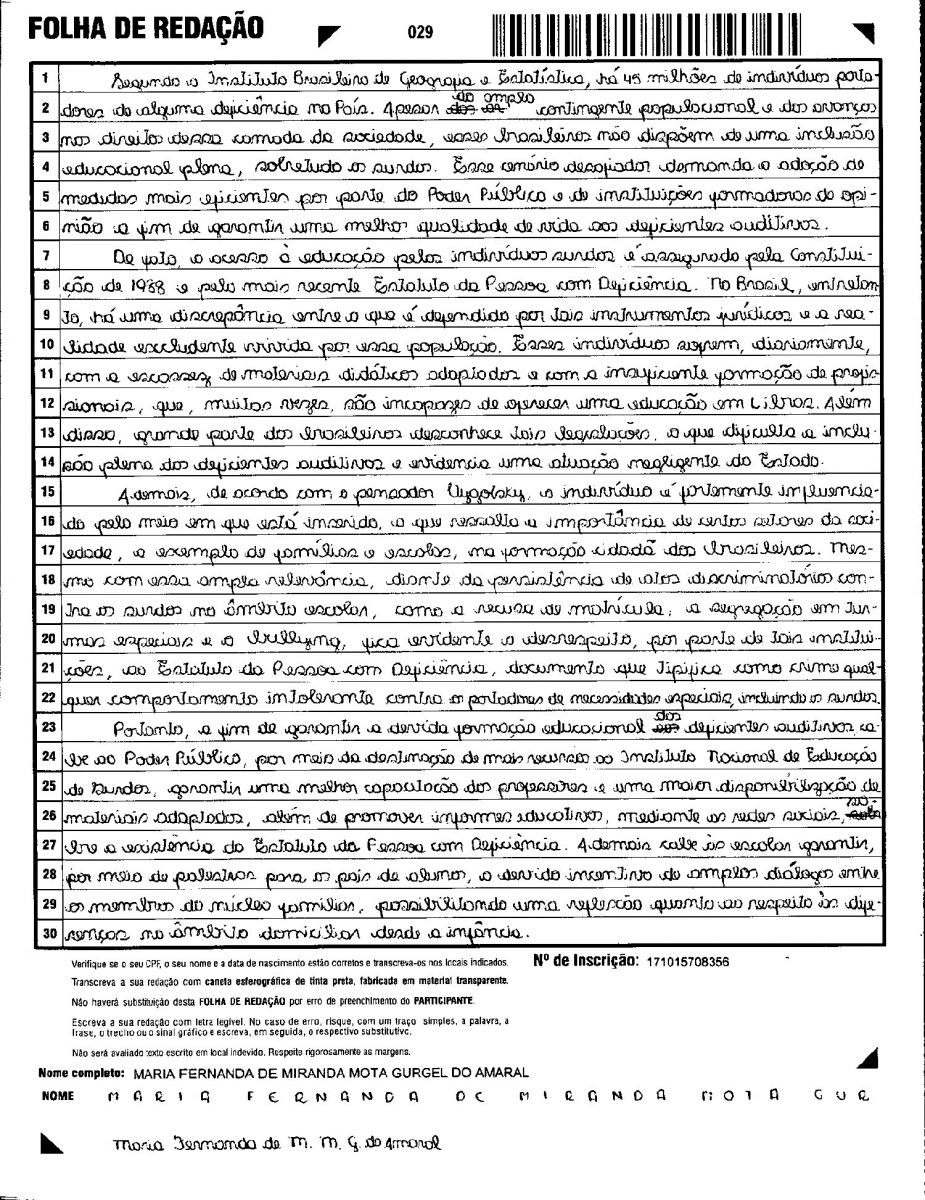 FOLHA DE REDAÇÃO
029
1 Segundo o Instituto Brasileiro de Geografia e Estatística, há 45 milhões de indivíduos porta-
2 dores de alguma deficiência no País. Apesar do amplo contingente populacional e dos avanços
3 nos direitos dessa camada da sociedade, esses brasileiros não dispõem de uma inclusão
4 educacional plena, sobretudo os surdos. Esse cenário desafiador demanda a adoção de
5 medidas mais eficientes por parte do Poder Público e de instituições formadoras de opi-
6 nião a fim de garantir uma melhor qualidade de vida aos deficientes auditivos.
7 De fato, o acesso à educação pelos indivíduos surdos é assegurado pela Constitui-
8 ção de 1988 e pelo mais recente Estatuto da Pessoa com Deficiência. No Brasil, entretan
9 to, há uma discrepância entre o que é defendido por tais instrumentos jurídicos e a rea-
10 lidade excludente vivida por essa população. Esses indivíduos sofrem, diariamente,
11 com a escassez de materiais didáticos adaptados e com a insuficiente formação de profis
12 sionais, que, muitas vezes, são incapazes de oferecer uma educação em Libras. Além
13 disso, grande parte dos brasileiros desconhece tais legislações, o que dificulta a inclu-
14 são plena dos deficientes auditivos e evidencia uma atuação negligente do Estado.
15 Ademais, de acordo com o pensador Vygotsky, o indivíduo é fortemente influencia-
16 do pelo meio em que está inserido, o que ressalta a importância de certos setores da soci-
17 edade, a exemplo de famílias e escolas, na formação cidadã dos brasileiros. Mes-
18 mo com essa ampla relevância, diante da persistência de atos discriminatórios con-
19 tra os surdos no âmbito escolar, como a recusa de matrícula, a segregação em tur-
20 mas especiais e o bullying, fica evidente o desrespeito, por parte de tais institui-
21 ções, ao Estatuto da Pessoa com Deficiência, documento que tipifica como crime qual-
22 quer comportamento intolerante contra os portadores de necessidades especiais, incluindo os surdos.
23 Portanto, a fim de garantir a devida formação educacional dos deficientes auditivos ca-
24 be ao Poder Público, por meio da destinação de mais recursos ao Instituto Nacional de Educação
25 de Surdos, garantir uma melhor capacitação dos professores e uma maior disponibilização de
26 materiais adaptados, além de promover informes educativos, mediante as redes sociais, so-
27 bre a existência do Estatuto da Pessoa com Deficiência. Ademais cabe às escolas garantir,
28 por meio de palestras para os pais de alunos, o devido incentivo de amplos diálogos entre
29 os membros do núcleo familiar, possibilitando uma reflexão quanto ao respeito às dife-
30 renças no âmbito domiciliar desde a infância.
Verifique se o seu CPF, o seu nome e a data de nascimento estão corretos e transcreva-os nos locais indicados.
Nº de Inscrição: 171015708356
Transcreva a sua redação com caneta esferográfica de tinta preta, fabricada em material transparente.
Não haverá substituição desta FOLHA DE REDAÇÃO por erro de preenchimento do PARTICIPANTE.
Escreva a sua redação com letra legível. No caso de erro, risque, com um traço simples, a palavra, a
frase, o trecho ou o sinal gráfico e escreva, em seguida, o respectivo substitutivo.
Não será avaliado texto escrito em local indevido. Respeite rigorosamente as margens.
Nome completo: MARIA FERNANDA DE MIRANDA MOTA GURGEL DO AMARAL
NOME MARIA FERNANDA DE MIRANDA MOTA GUR
Maria Fernanda de M. M. G. do Amaral